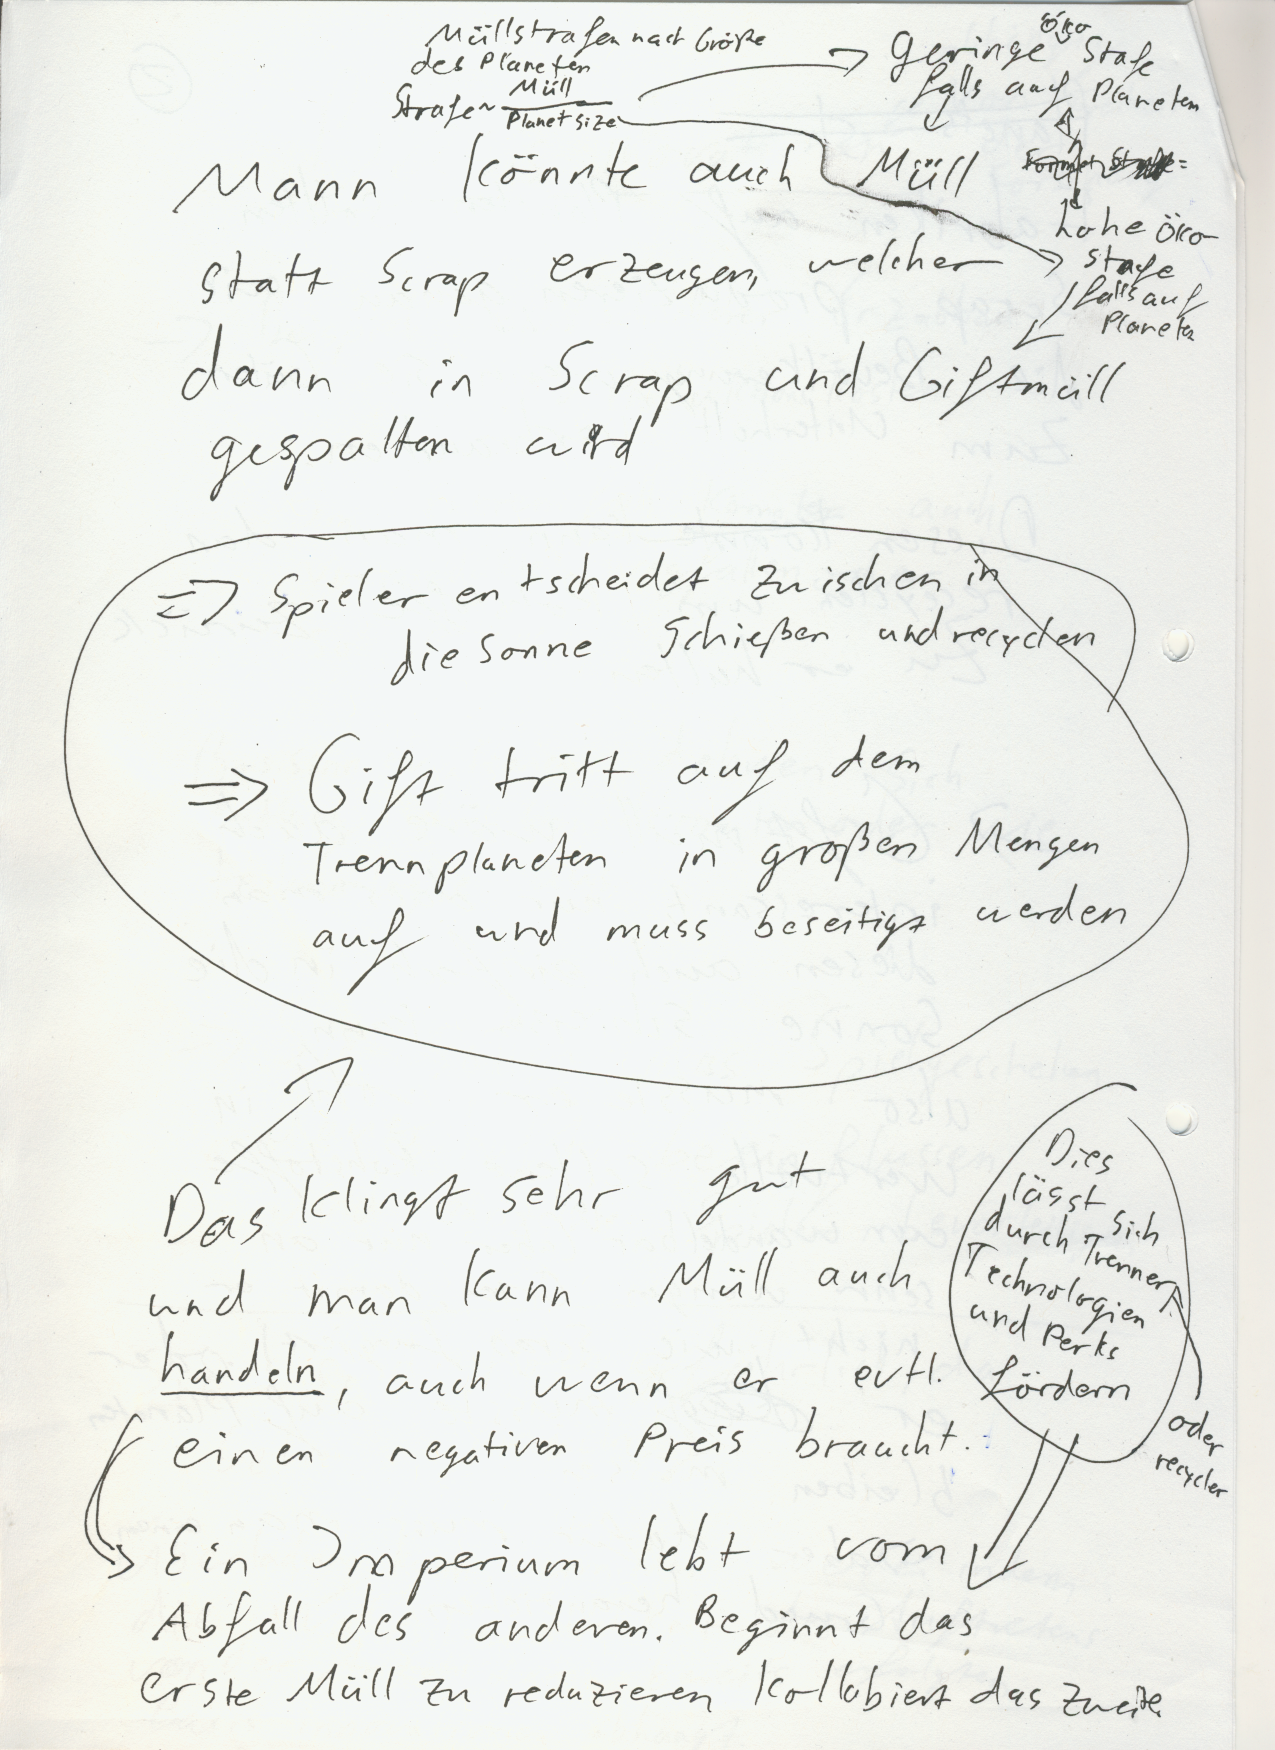 Müllstrafen nach Größe
des Planeten
Strafe ~ Müll
Planet size
Geringe Öko Stafe
falls auf Planeten
Mann könnte auch Müll
hohe Öko-
stafe
falls auf
Planeten
statt Scrap erzeugen, welcher
dann in Scrap und Giftmüll
gespalten wird
=> Spieler entscheidet Zwischen in
die Sonne Schießen und recyclen
=> Gift tritt auf dem
Trennplaneten in großen Mengen
auf und muss beseitigt werden
Das klingt sehr gut
und man kann Müll auch
handeln, auch wenn er evtl.
einen negativen Preis braucht.
Dies
lässt sich
durch Trenner
Technologien
und Perks
fördern
oder
recycler
Ein Imperium lebt vom
Abfall des anderen. Beginnt das
erste Müll zu reduzieren kollabiert das zweite.